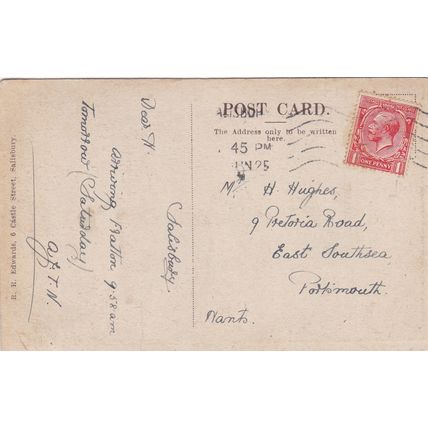 POST CARD.
The Address only to be written
here.
SALISBURY
45 PM
JN 25
ONE PENNY
1 1
Mr H Hughes,
9 Pretoria Road,
East Southsea
Portsmouth.
Hants.
(Salisbury
Dear H.
arriving Fratton 9.58 am
tomorrow (Saturday)
R. R. Edwards, 6 Castle Street, Salisbury.